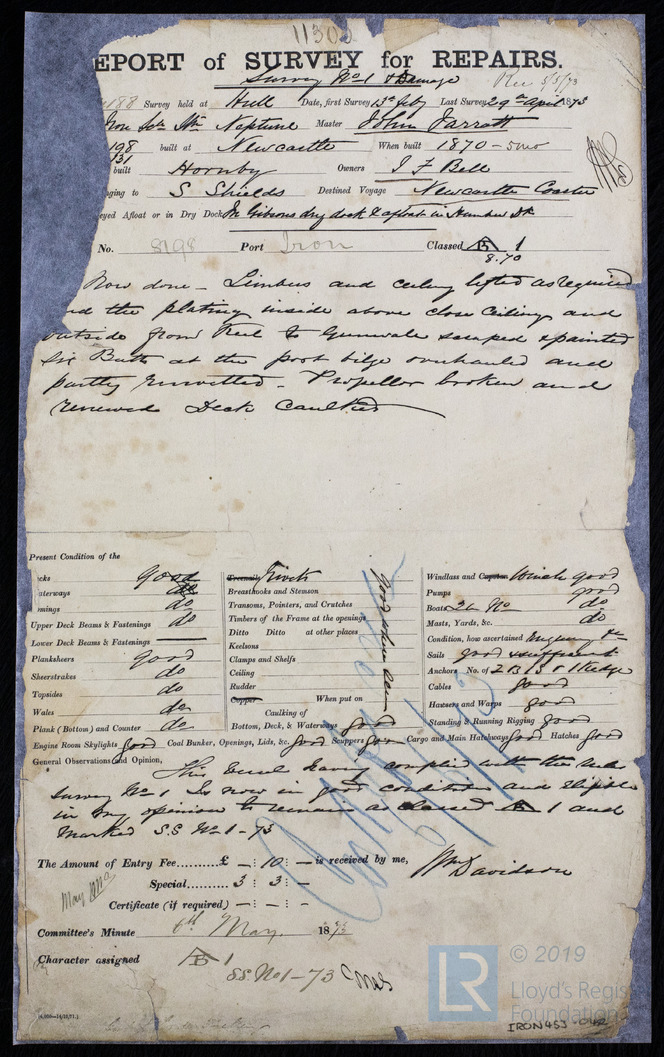 1130
EPORT of SURVEY for REPAIRS.
Survey No 1 & Damage
Rec 5/5/73
188 Survey held at Hull Date, first Survey 13th Feby Last Survey 29th April 1873
Neptune Master John Jarratt
198 built at Newcastle When built 1870 - 5mo
131
built Hornby Owners I F Bell
nging to S Shields Destined Voyage Newcastle Coaster
eyed Afloat or in Dry Dock In Gibsons dry dock & afloat in Humber Dk
No. 8198 Port Iron Classed A 1
8.70
Now done - Limbers and ceiling lifted as required
nd the plating inside above close Ceiling and
outside from Keel to Gunwale scraped & painted
Six Butts at the port bilge overhauled and
partly rerivetted - Propellor broken and
renewed Deck Caulked
Present Condition of the
ecks Good
aterways do
mings do
Upper Deck Beams & Fastenings do
Lower Deck Beams & Fastenings
Planksheers good
Sheerstrakes do
Topsides do
Wales do
Plank (Bottom) and Counter do
Treenails Rivets
Breasthooks and Stemson
Transoms, Pointers, and Crutches
Timbers of the Frame at the openings
Ditto Ditto at other places
Keelsons
Clamps and Shelfs
Ceiling
Rudder
Copper When put on
Caulking of
Bottom, Deck, & Waterways good
good where seen
Windlass and Capstan Winch good
Pumps good
Boats 2 do
Masts, Yards, &c. do
Condition, how ascertained
Sails good & sufficient
Anchors No. of 2 B 1 S & 1 Kedge
Cables good
Hawsers and Warps good
Standing & Running Rigging good
Engine Room Skylights good Coal Bunker, Openings, Lids, &c. good Scuppers good Cargo and Main Hatchways good Hatches good
General Observations and Opinion,
This Vessel having complied with the
survey No 1 Is now in good condition and eligible
in my opinion to remain as classed A 1 and
Marked S.S No 1 - 73
The Amount of Entry Fee..........£ — : 10 : — is received by me,
Wm Davidson
Special.......... 3 : 3 : —
May
Certificate (if required) — : — : —
Committee's Minute 6th May 1873
Character assigned A 1
SS. No 1 - 73
LR
© 2019
Lloyd's Regis
Foundation
IRON453-042